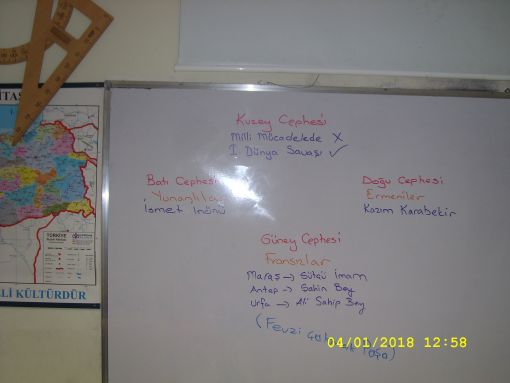 Kuzey Cephesi
Milli Mücadelede X
I. Dünya Savaşı ✓
Batı Cephesi
Yunanlılar
İsmet İnönü
Doğu Cephesi
Ermeniler
Kazım Karabekir
Güney Cephesi
Fransızlar
Maraş → Sütçü İmam
Antep → Şahin Bey
Urfa → Ali Saip Bey
(Fevzi
TÜRKİYE
Lİ KÜLTÜRDÜR
04/01/2018 12:58